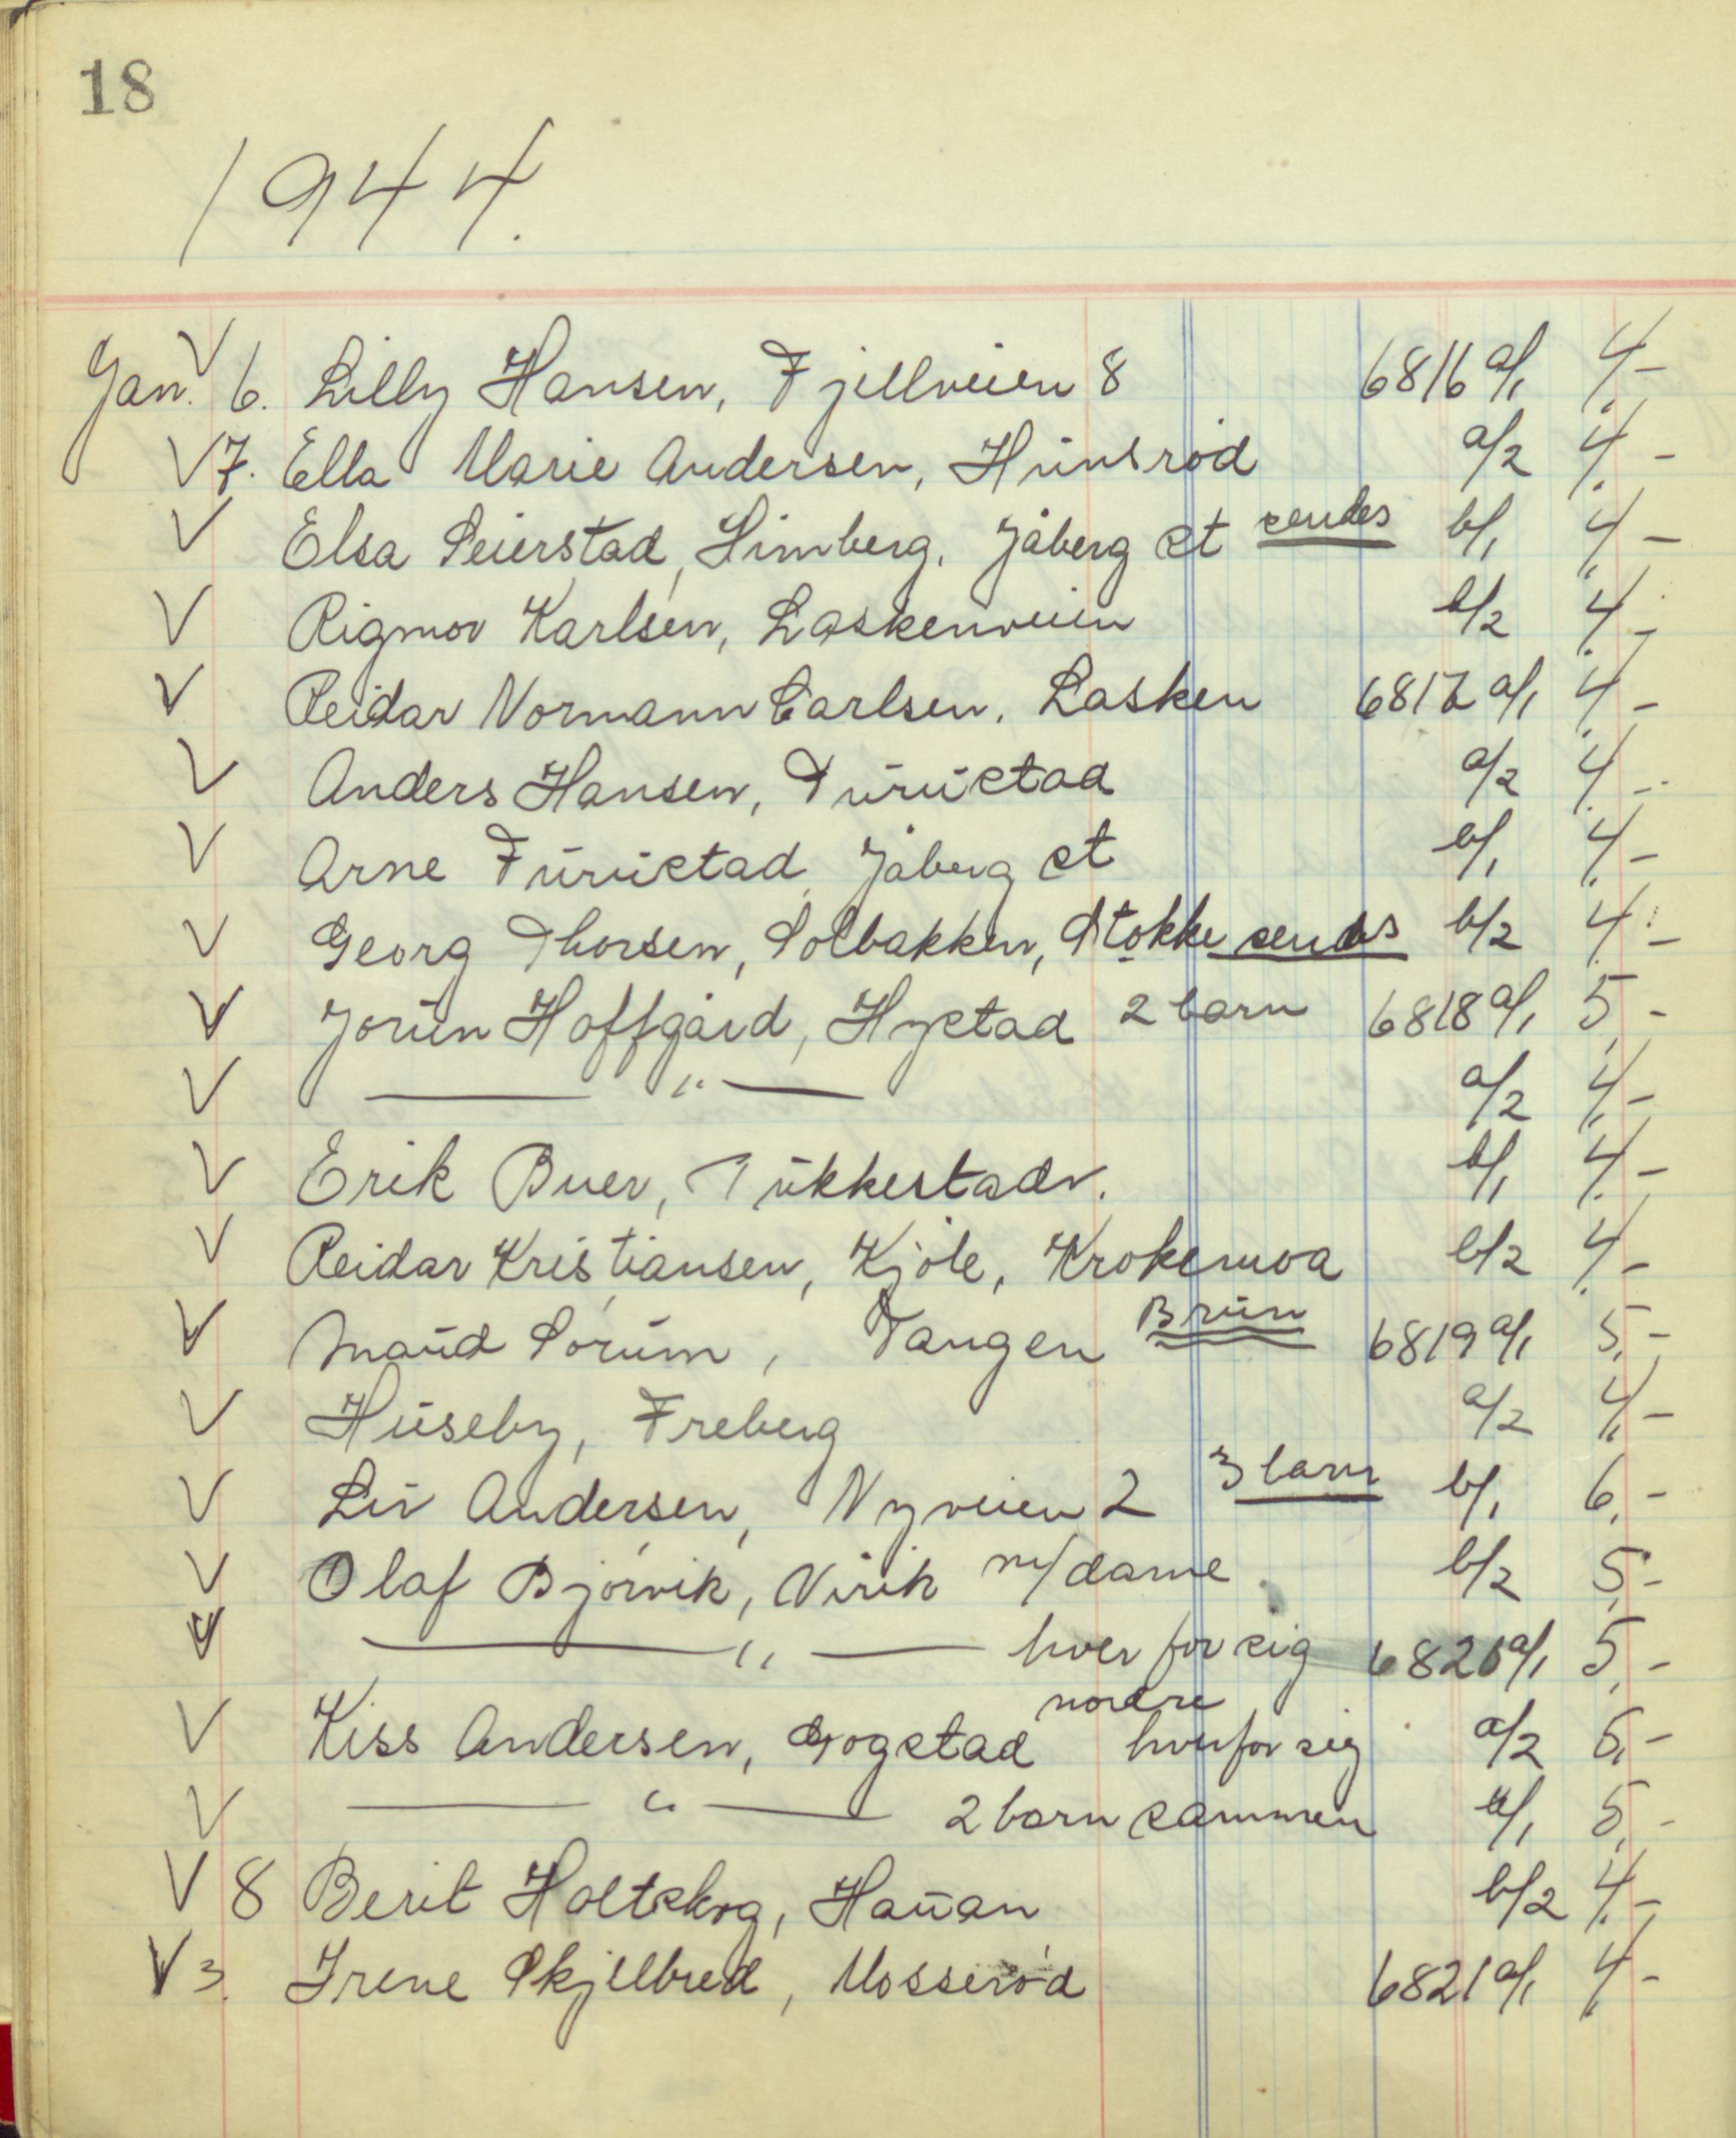 18
1944.
Jan. V 6. Lilly Hansen, Fjellveien 8 6816 a/1 4,-
V 7. Ella Marie Andersen, Hunsrød a/2 4,-
V Elsa Seierstad, Limberg, Jåberg st sendes b/1 4,-
V Rigmor Karlsen, Laskenveien b/2 4,-
V Reidar Normann Carlsen, Lasken 6817 a/1 4,-
V Anders Hansen, Furustad a/2 4,-
V Arne Furustad, Jåberg st b/1 4,-
V Georg Thorsen, Solbakken, Stokke sendes b/2 4,-
V Jorun Hoffgård, Hystad 2 barn 6818 a/1 5,-
V — " — a/2 4,-
V Erik Buer, Tukkestadv. b/1 4,-
V Reidar Kristiansen, Kjøle, Krokemoa b/2 4,-
V Maud Sørum, Tangen Brun 6819 a/1 5,-
V Huseby, Freberg a/2 4,-
V Liv Andersen, Nyveien 2 3 barn b/1 6,-
V Olaf Bjørvik, Virik m/dame b/2 5,-
V — " — hver for sig 6820 a/1 5,-
V Kiss Andersen, Gogstad nordre hver for sig a/2 5,-
V — " — 2 barn sammen b/1 5,-
V 8 Berit Holtskog, Hauan b/2 4,-
V 3. Irene Skjelbred, Mosserød 6821 a/1 4,-